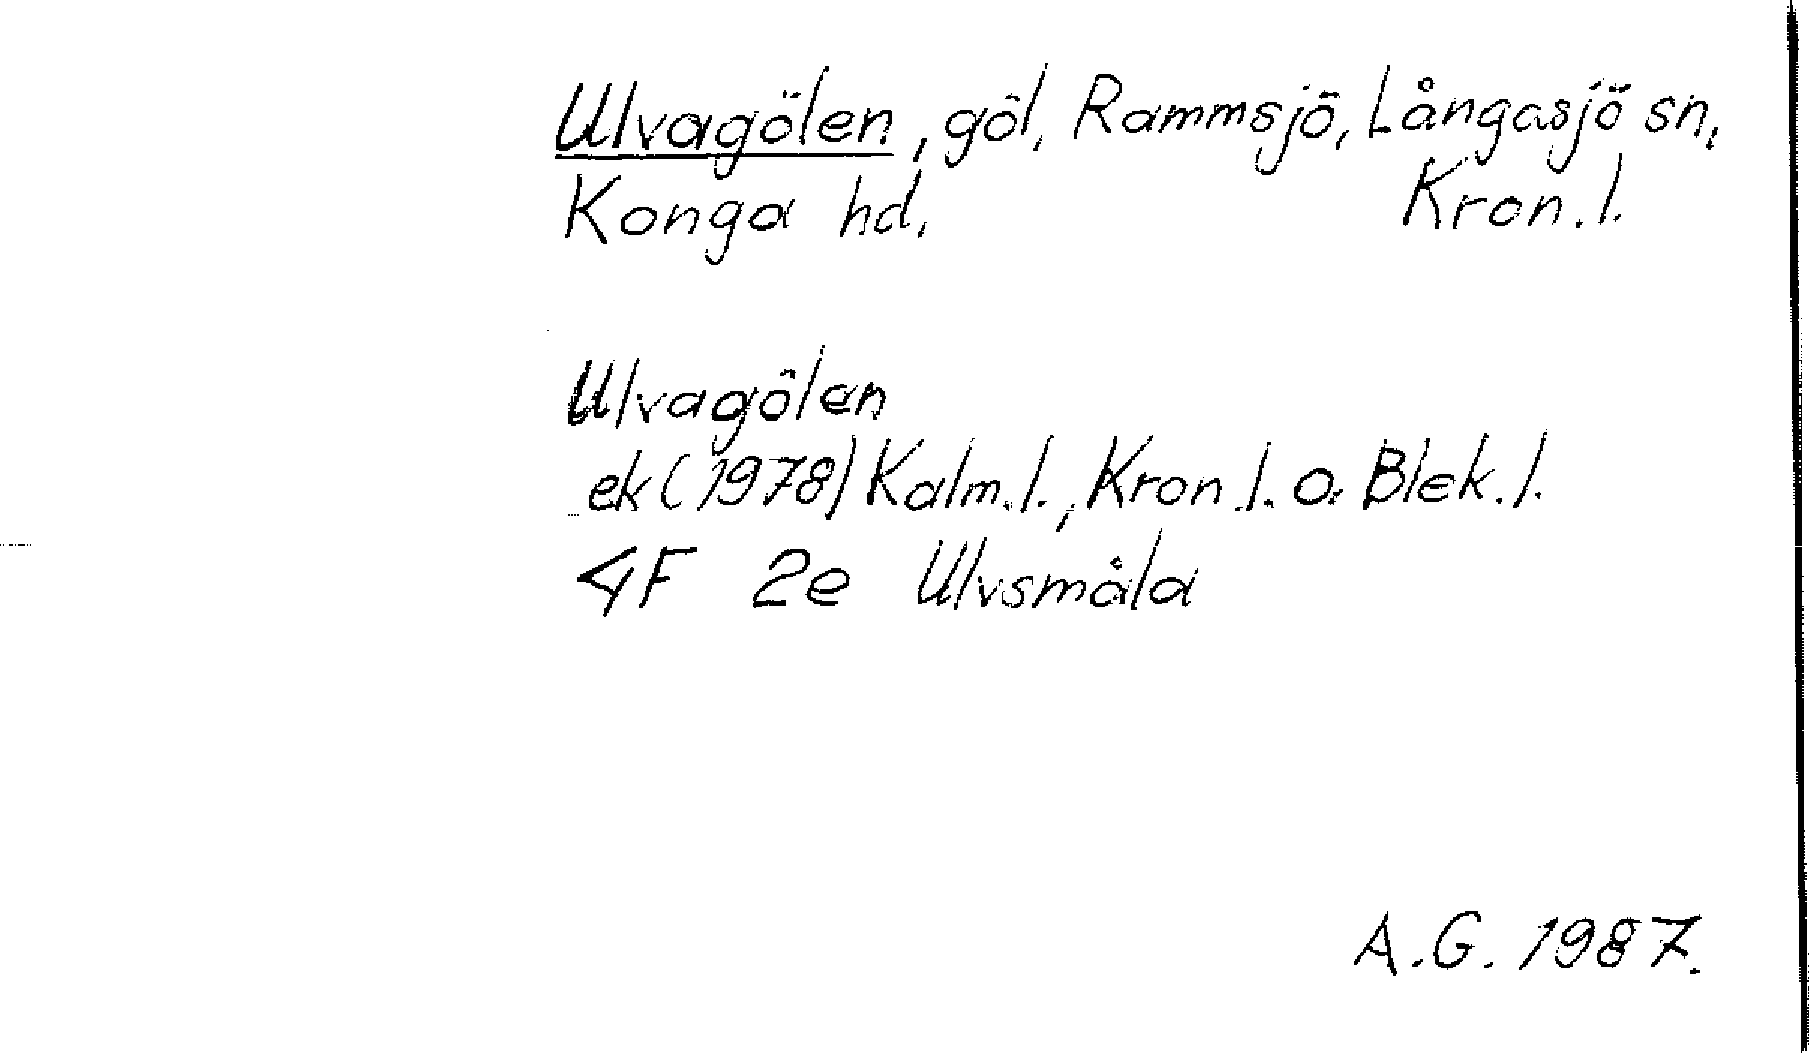 Ulvagölen, göl, Rammsjö, Långasjö sn,
Konga hd. Kron.l.
Ulvagölen
ek (1978) Kalm.l., Kron.l. o. Blek.l.
4F 2e Ulvsmåla
A.G. 1987.